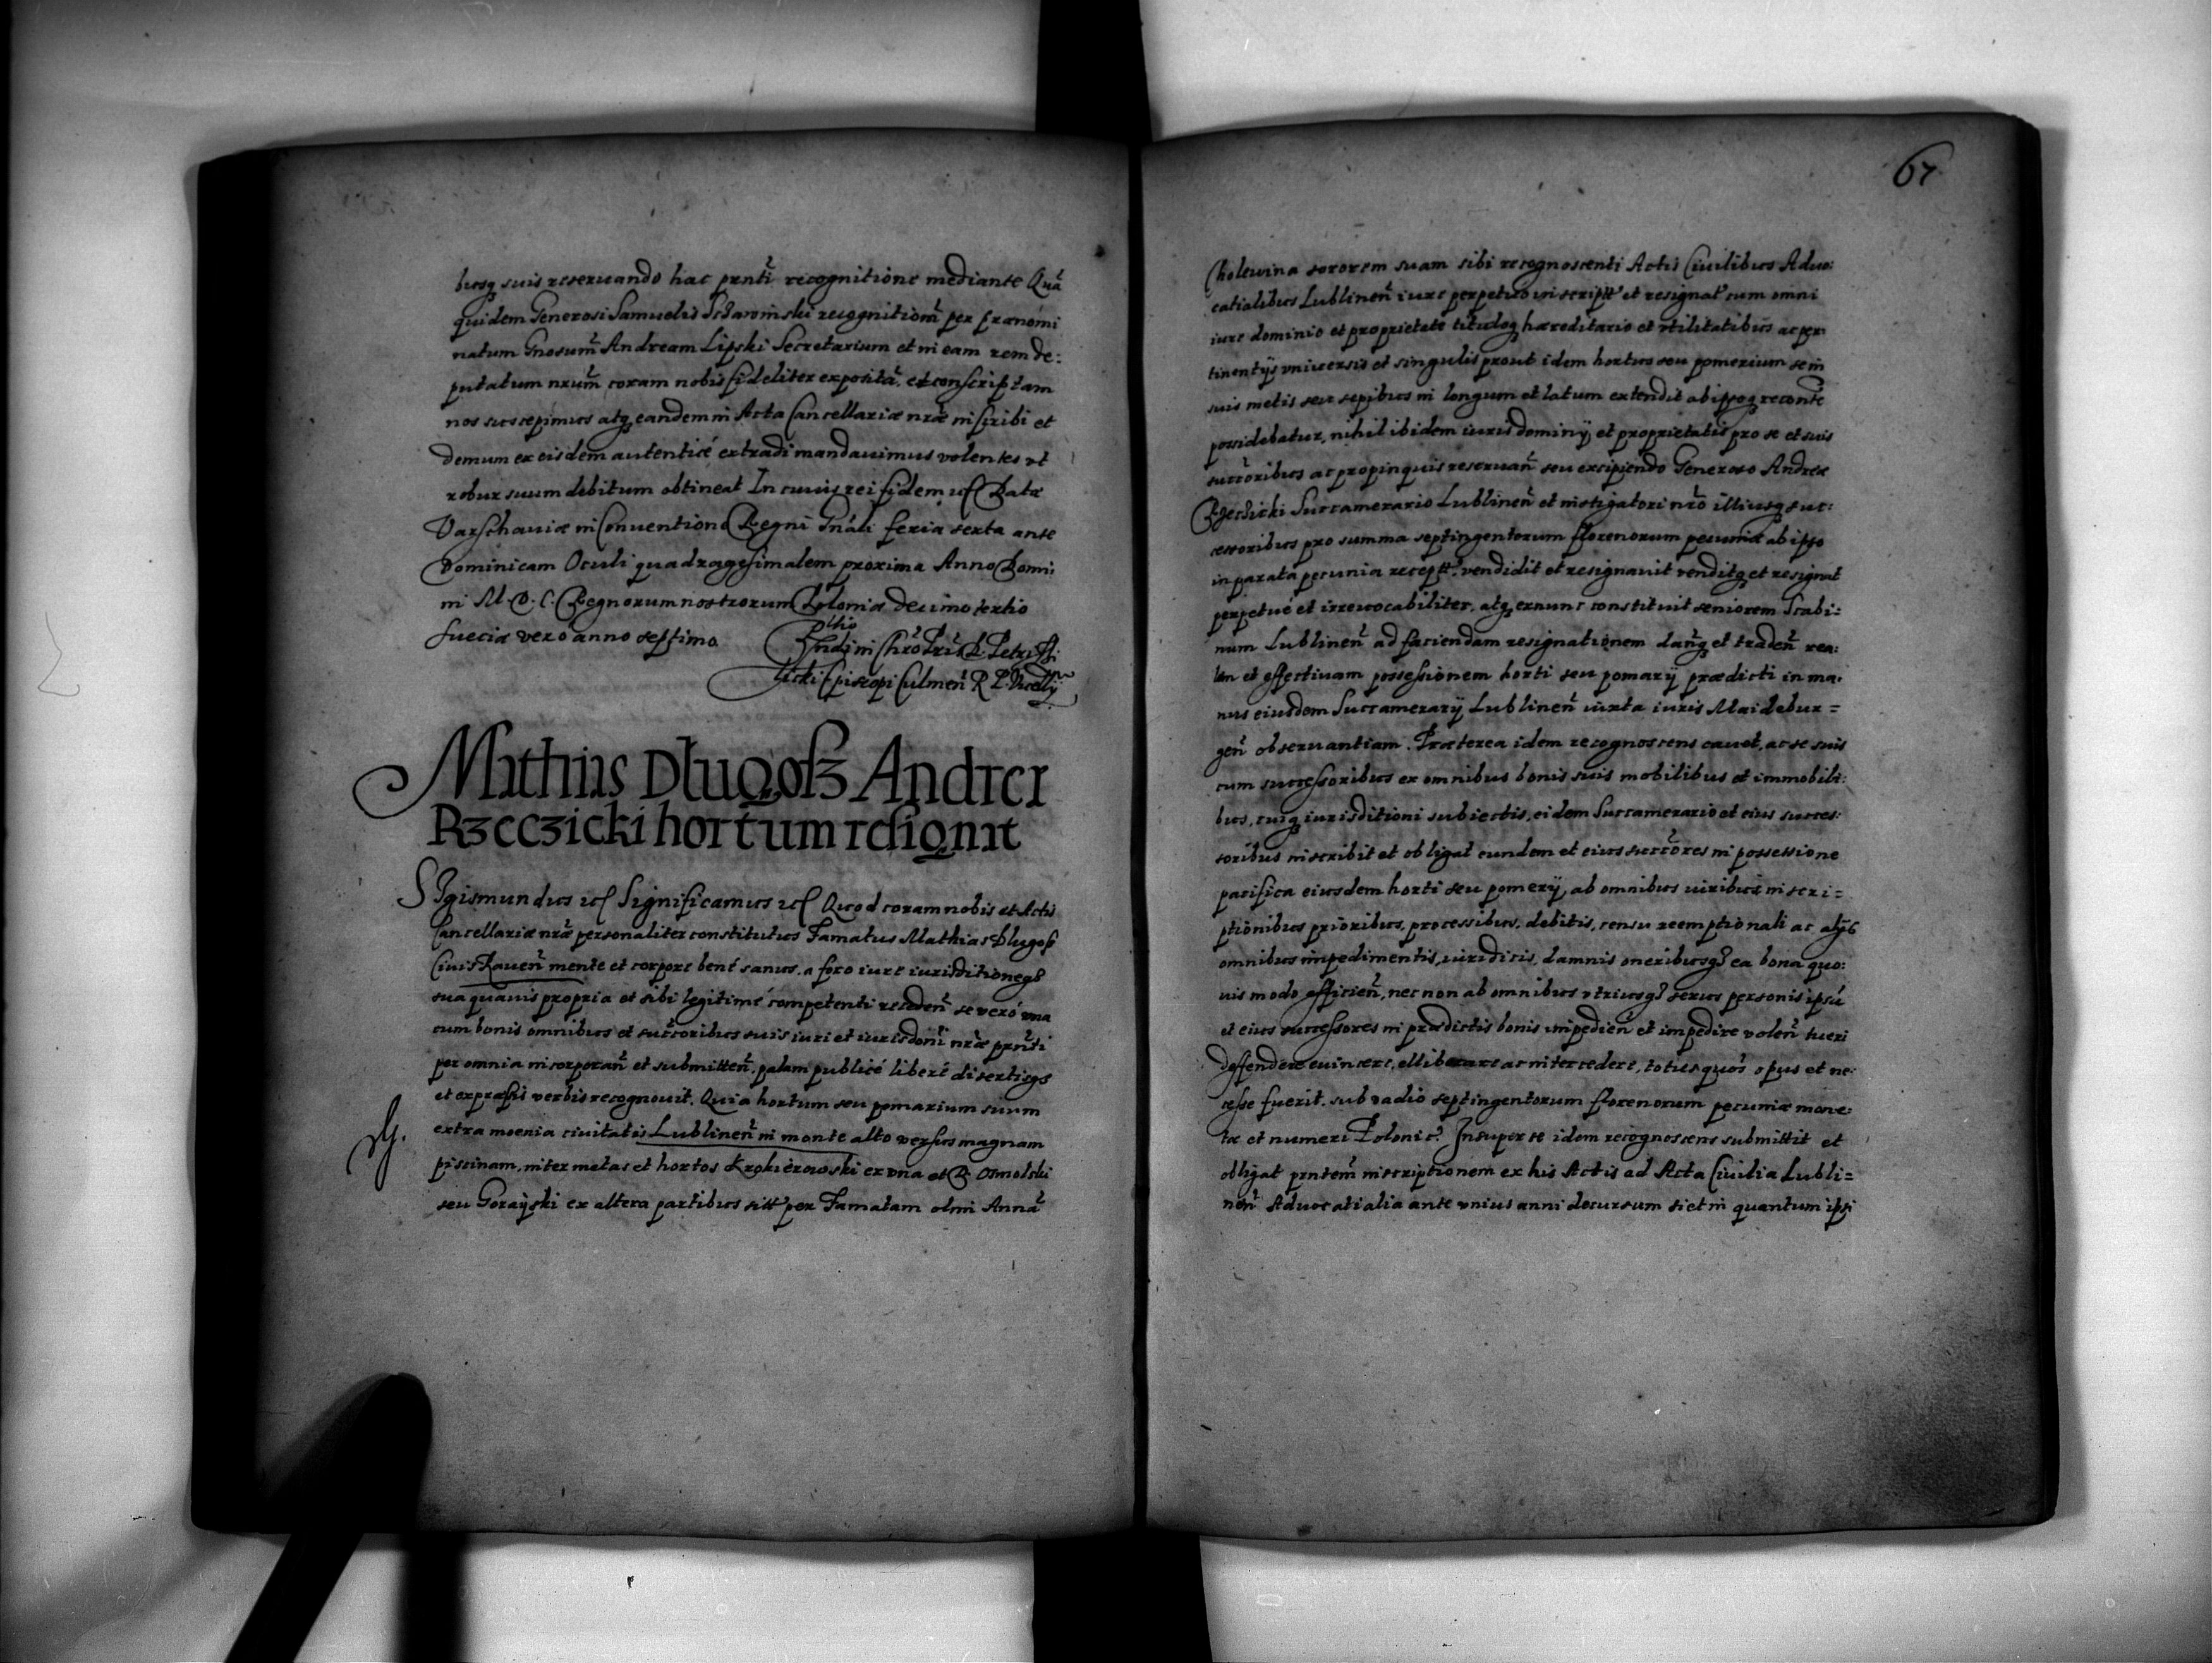 busq suis reseruando hac prnti recognitione mediante Quā
quidem Generosi Samuelis recognitionē per prænomi
natum Gnosum Andream Lipski Secretarium et in eam rem de:
putatum nrum coram nobis fideliter expositā, et conscriptam
nos suscepimus atq eandem in Acta Cancellariæ nræ inscribi et
demum ex eisdem autenticé extradi mandauimus volentes vt
robur suum debitum obtineat In cuius rei fidem Datæ
Varschauiæ in Conuentione Regni Gnáli feria sexta ante
Dominicam Oculi quadragesimalem proxima Anno Domi:
ni M.D.C. Regnorum nostrorum Poloniæ decimo tertio
Sueciæ vero anno septimo.
Rltio
Rndi in Chro Pris D. Petri Ti
licki Episcopi Culmen R P. Vicecllrij
Mathias Długosz Andreæ
Rzeczicki hortum resignat
Sigismundus Significamus Quod coram nobis et Actis
Cancellariæ nræ personaliter constitutus Famatus Mathias Dlugoss
Ciuis Rauen mente et corpore bené sanus, a foro iure iurisditioneq
sua quauis propria et sibi legitimé competenti receden se veró vna
cum bonis omnibus et succoribus suis iuri et iurisdoni nræ prnti
per omnia incorporan et submitten, palam publicé liberé disertisq
et expræssis verbis recognouit. Quia hortum seu pomarium suum
extra moenia ciuitatis Lublinen in monte alto versus magnam
piscinam, inter metas et hortos Krokierowski ex vna et D. Osmolski
seu Gorayski ex altera partibus sitt per Famatam olim Annā
67
Cholewina sororem suam sibi recognoscenti Actis Ciuilibus Aduo:
catialibus Lublinen iure perpetuo inscript et resignat cum omni
iure dominio et proprietate tituloq hæreditario et vtilitatibus ac per:
tinentijs vniuersis et singulis prout idem hortus seu pomerium se in
suis metis seu sepibus in longum et latum extendit ab ipsoq recontē
possidebatur, nihil ibidem iuris dominij et proprietatis pro se et suis
succoribus ac propinquis reseruan seu excipiendo Generoso Andreæ
Rzechicki Succamerario Lublinen et instigatori nro illiusq suc:
cessoribus pro summa septingentorum florenorum pecuniæ ab ipso
in parata pecunia recept vendidit et resignauit venditq et resignat
perpetué et irreuocabiliter, atq exnunc constituit seniorem Scabi:
num Lublinen ad faciendam resignationem danq et traden rea:
lem et effectiuam possessionem horti seu pomarij prædicti in ma:
nus eiusdem Succamerarij Lublinen iuxta iuris Maidebur=
gen obseruantiam. Præterea idem recognoscens cauet, ac se suis
cum successoribus ex omnibus bonis suis mobilibus et immobili:
bus, cuiq iurisditioni subiectis, eidem Succamerario et eius succes:
soribus inscribit et obligat eundem et eius succores in possessione
pacifica eiusdem horti seu pomerij, ab omnibus inscri=
ptionibus prioribus, processibus, debitis, censu reemptionali ac alijs
omnibus impedimentis, iuridicis, damnis oneribusq ea bona quo:
uis modo efficien, nec non ab omnibus vtriusq sexus personis ipsū
et eius successores in prædictis bonis impedien et impedire volen tueri
deffendere euincere, elliberare ac intercedere, toties quos opus et ne:
cesse fuerit, sub vadio septingentorum florenorum pecuniæ mone:
tæ et numeri Polonic. Insuper se idem recognoscens submittit et
obligat prntem inscriptionem ex his Actis ad Acta Ciuilia Lubli=
nen Aduocatialia ante vnius anni decursum et in quantum ipsi